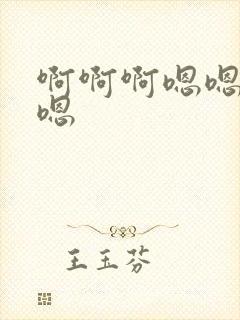 啊啊啊嗯嗯
嗯
王玉芬